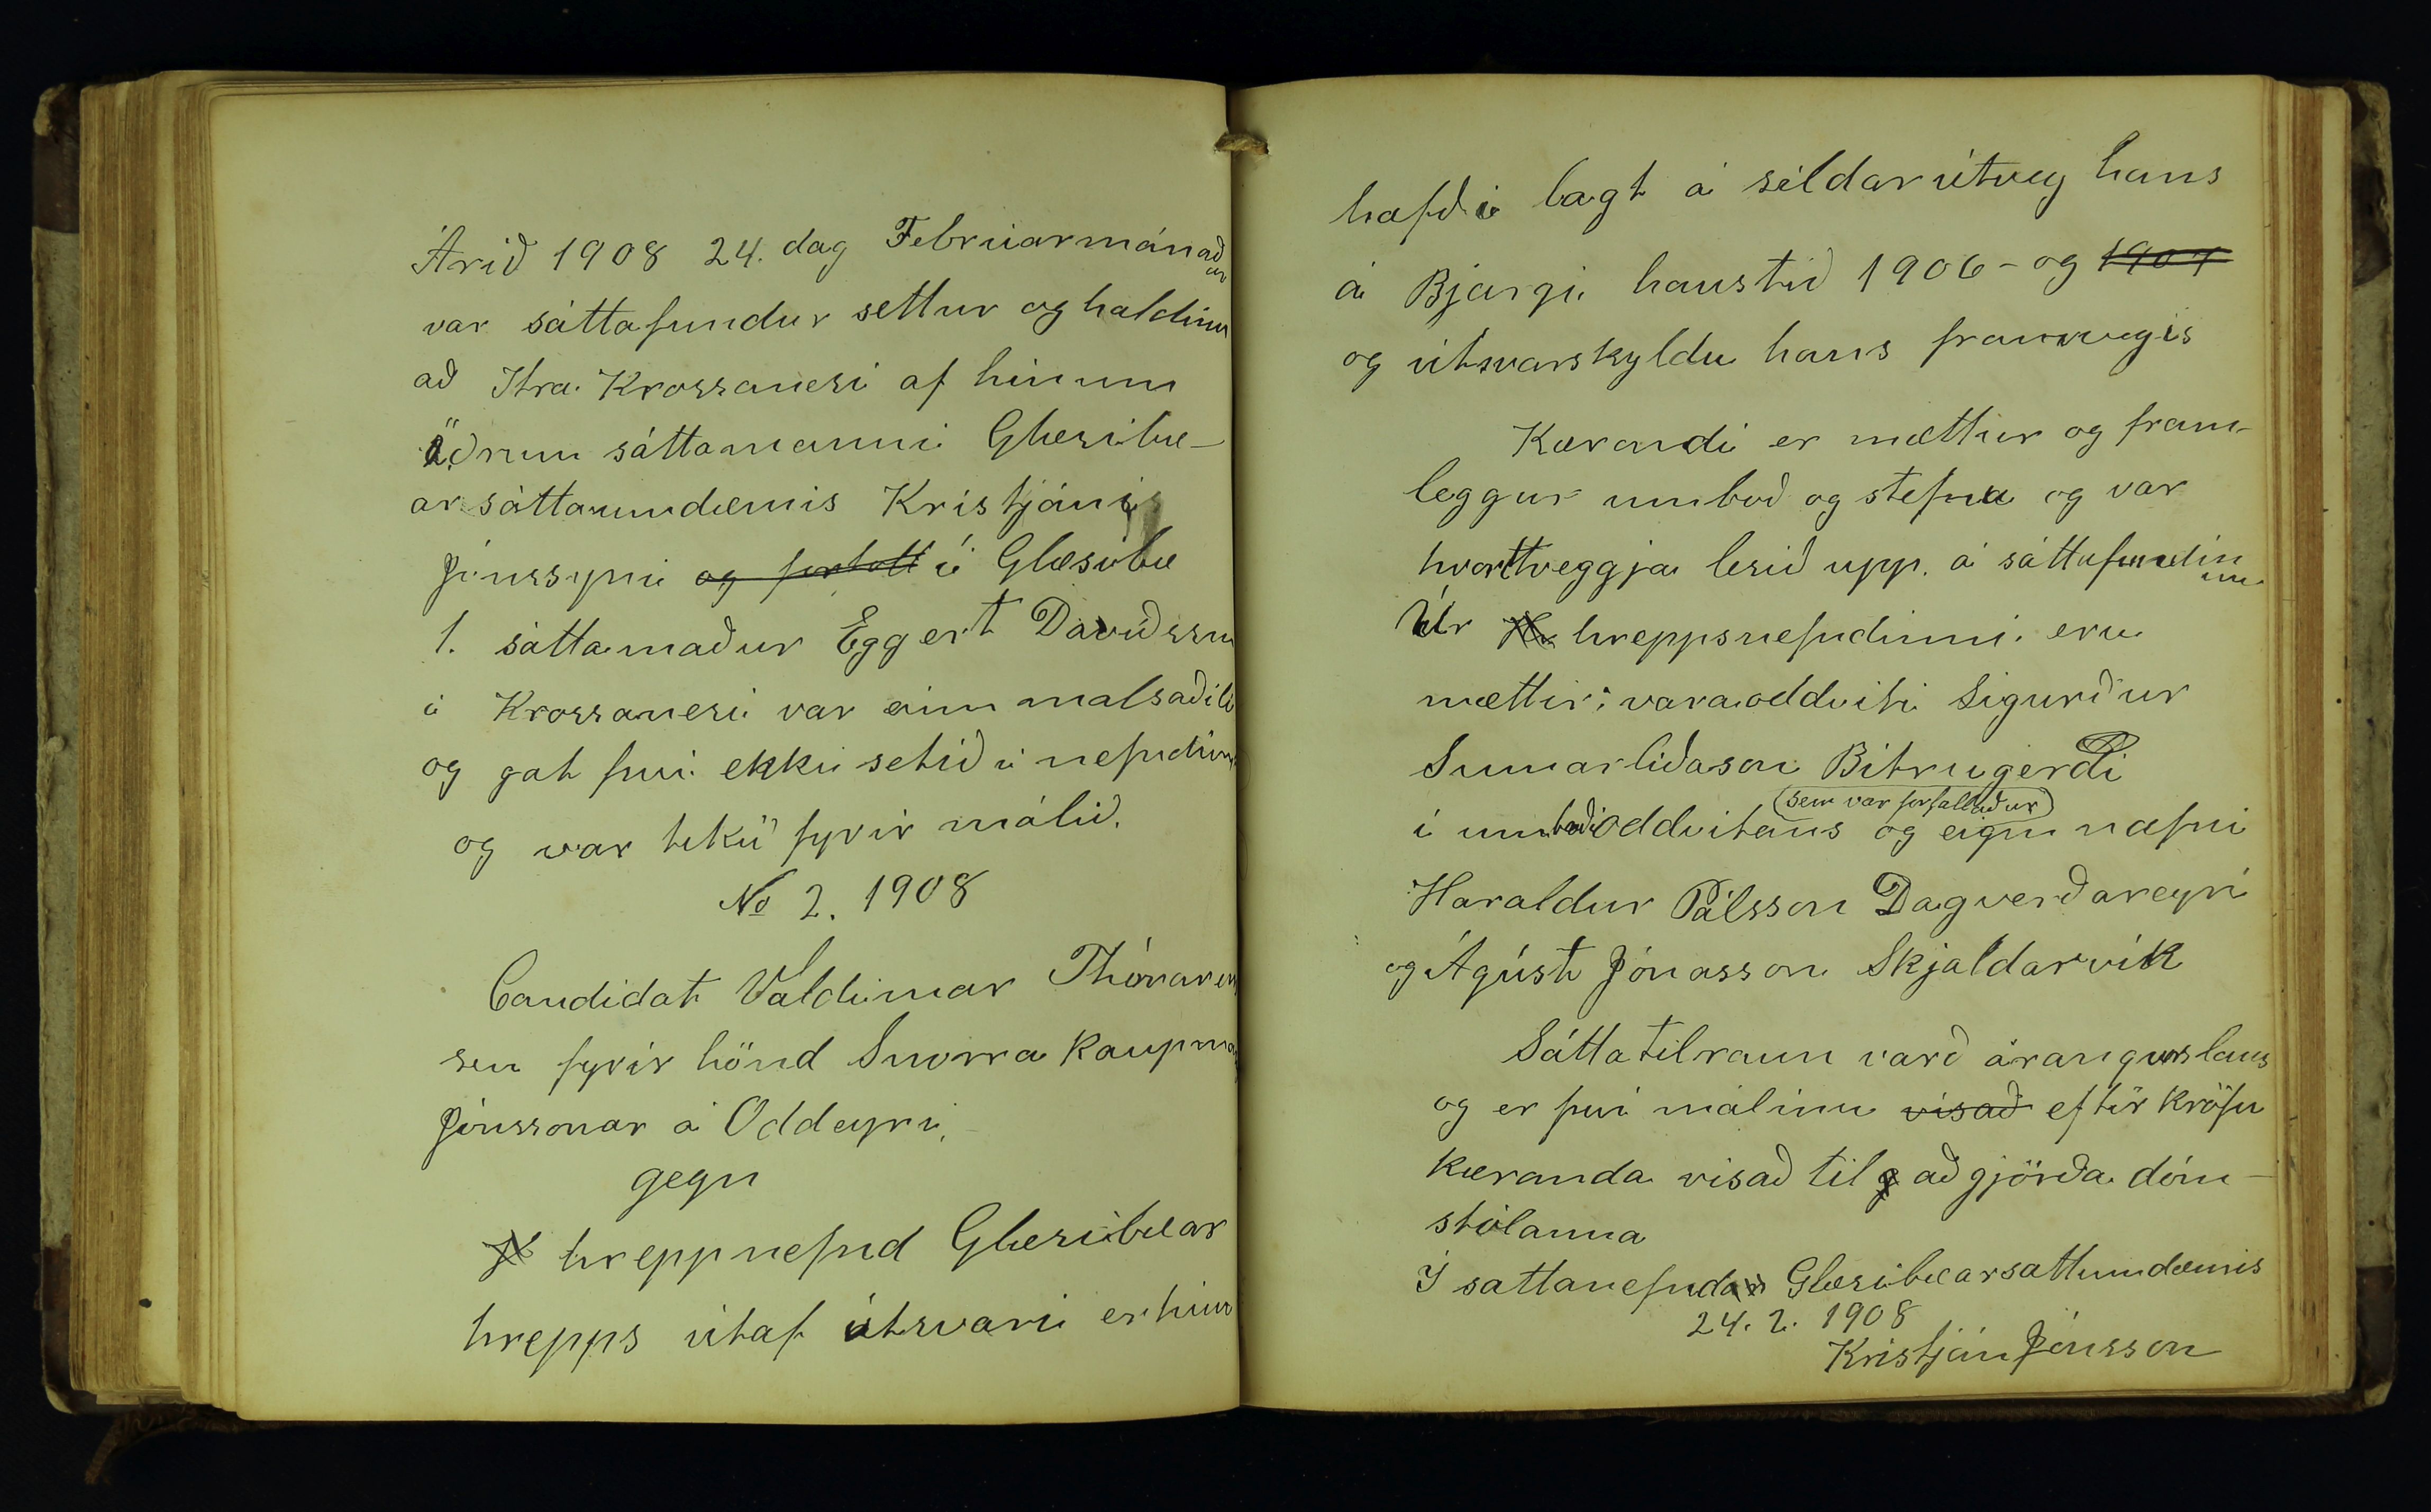 Árið 1908 24. dag Febrúarmánaðar
var sáttafundur settur og haldinn
að Itra Krossanesi af hinum
öðrum sáttamanni Glæsibæ-
ar sáttaumdæmis Kristjáni
Jónssyni og fortoll í Glæsibæ
1. sáttamaður Eggert Davíðsson
í Krossanesi var einn malsaðili
og gat því ekki setið í nefndinni
og var tekið fyrir málið.
No 2. 1908
Candidat Valdimar Thóraren
sen fyrir hönd Snorra kaupm
Jónssonar á Oddeyri,
gegn
hreppnefnd Glæsibæar
hrepps útaf útsvari er hún
hafði lagt á síldarútveg hans
á Bjargi haustið 1906 - og 1907
og útsvarskyldu hans framvegis
Kærandi er mættur og fram-
leggur umboð og stefnu og var
hvorttveggja lesið upp á sáttafundinum
Úr hreppsnefndinni eru
mættir: varaoddviti Sigurður
Sumarliðason Bitrugerði
(sem var forfallaður)
í umboði oddvitans og eigin nafni
Haraldur Pálsson Dagverðareyri
og Ágúst Jónasson Skjaldarvík
Sáttatilraun varð árangurslaus
og er því málinu vísað eftir kröfu
kæranda visað til aðgjörða dóm-
stólanna
Í sattanefnd Glæsibæarsattumdæmis
24. 2. 1908
Kristján Jónsson